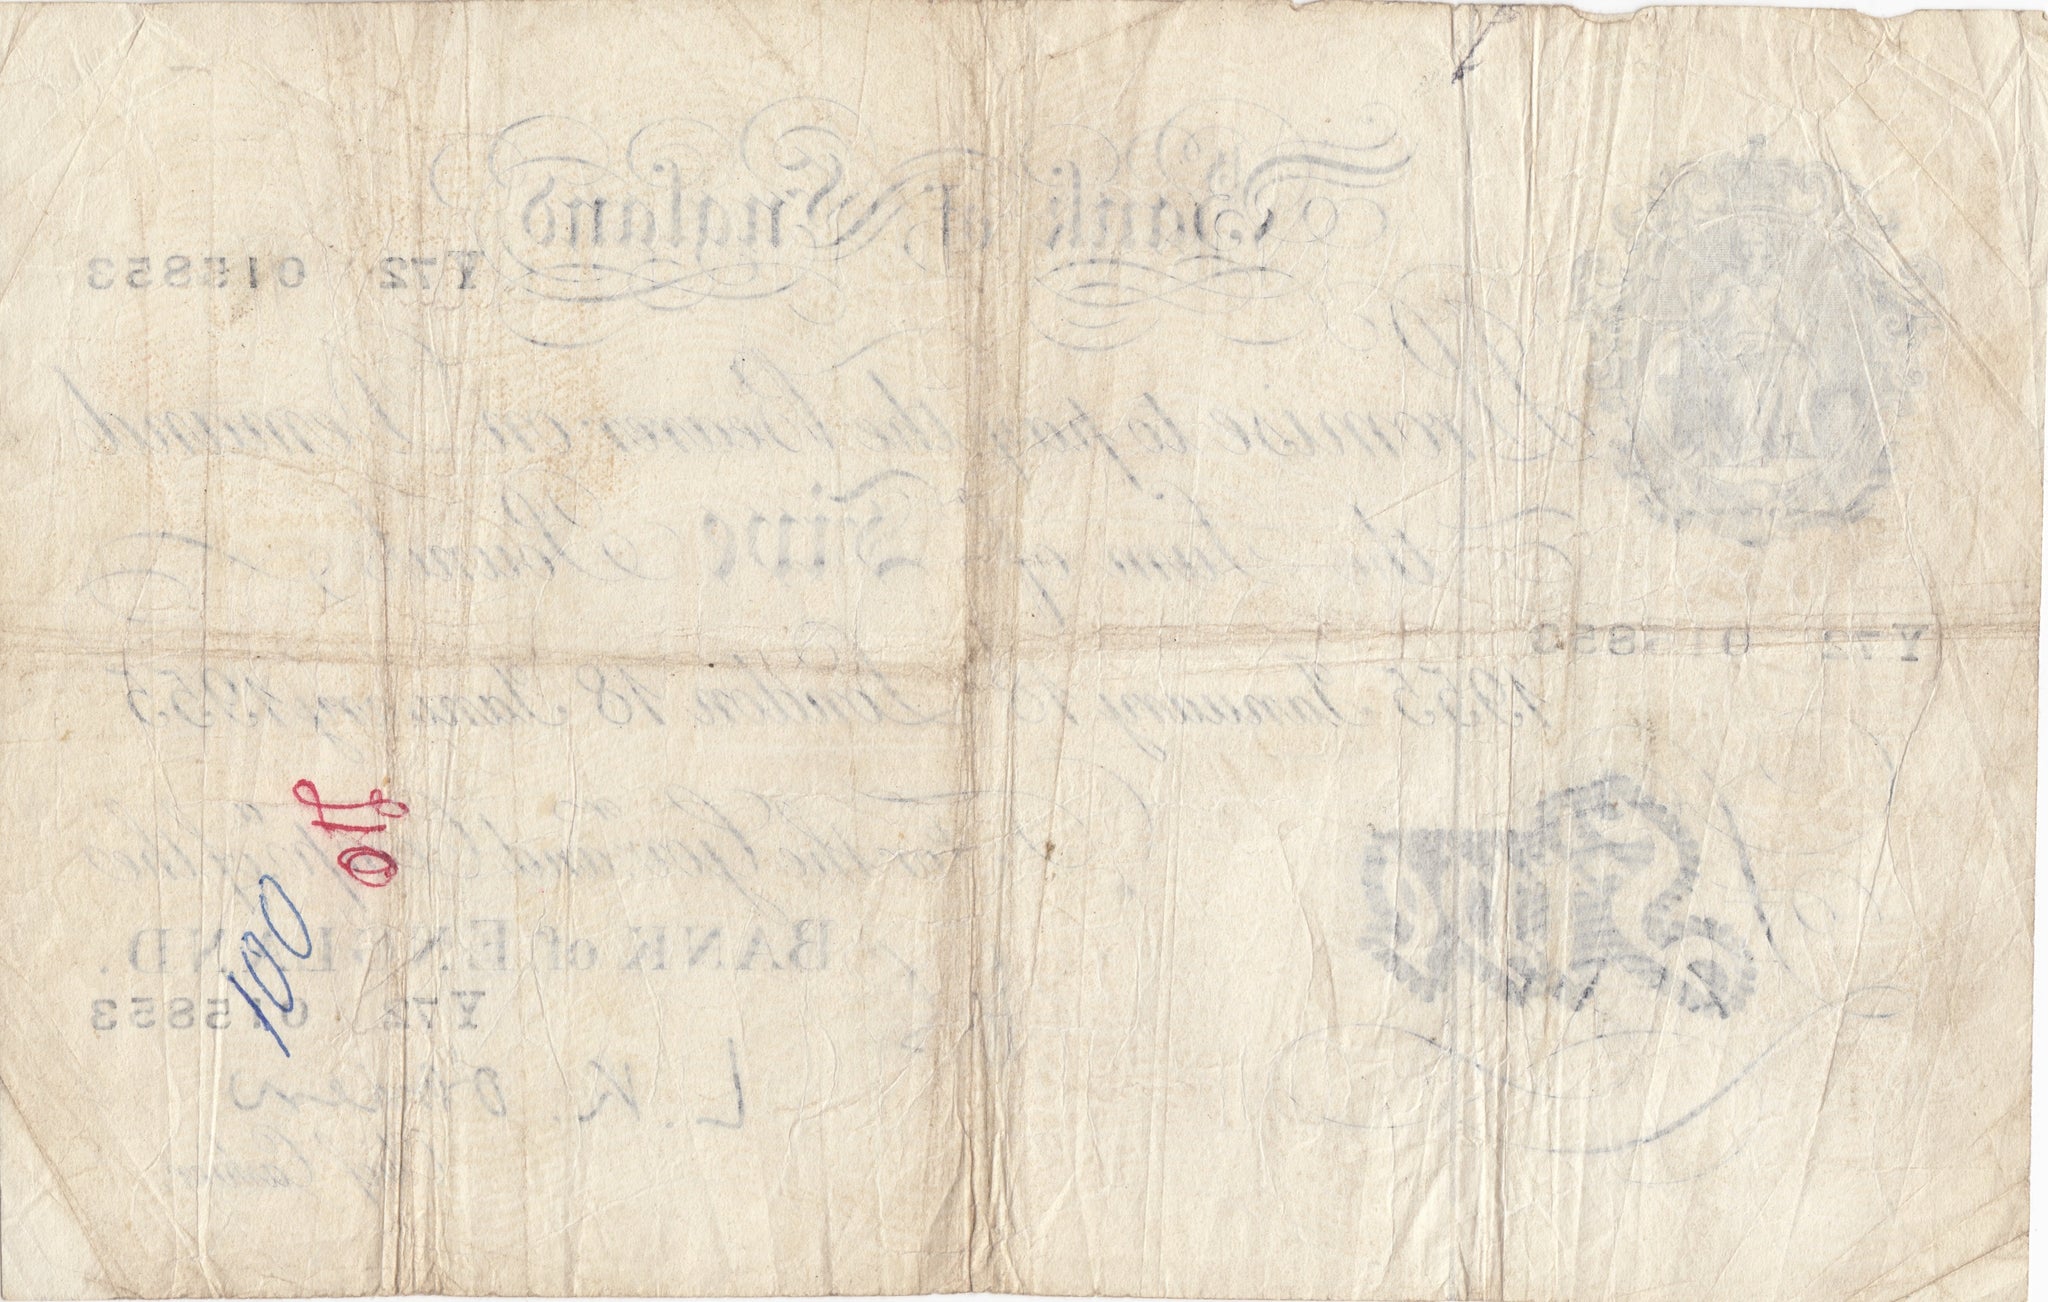 Bank of England
Y72 015853
I Promise to pay the Bearer on Demand
the Sum of Five Pounds
Y72 015853
1955 January 18 London 18 January 1955
For the Gov.r and Comp.a of the
BANK of ENGLAND.
Y72 015853
L. K. O'Brien
Chief Cashier.
100